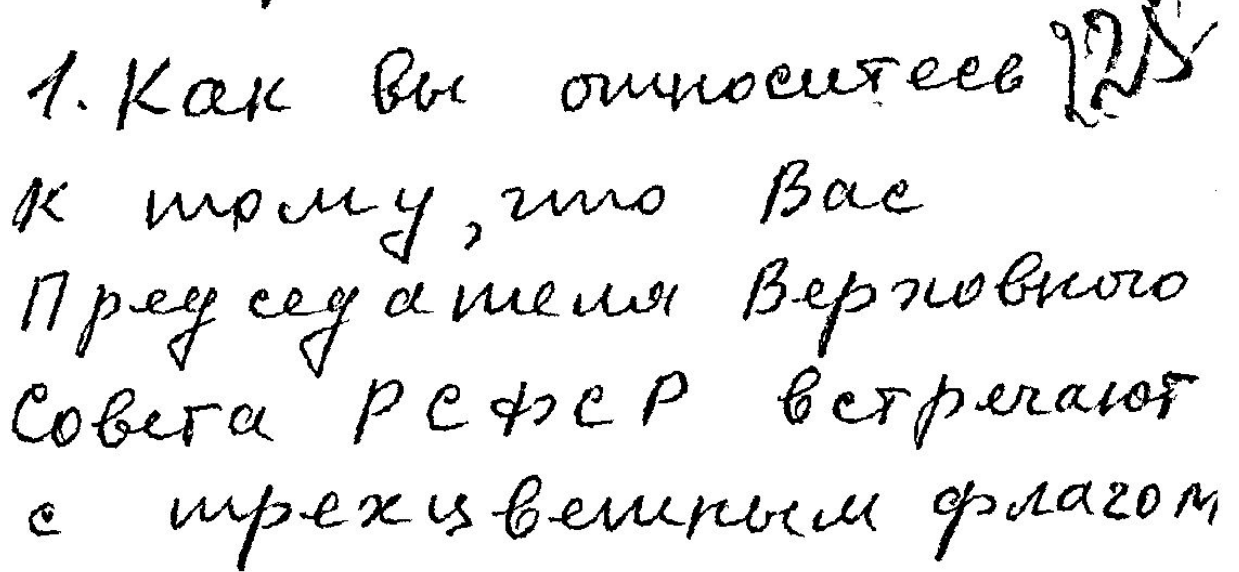 1. Как вы относитесь
к тому, что Вас
Председателя Верховного
Совета РСФСР встречают
с трехцветным флагом